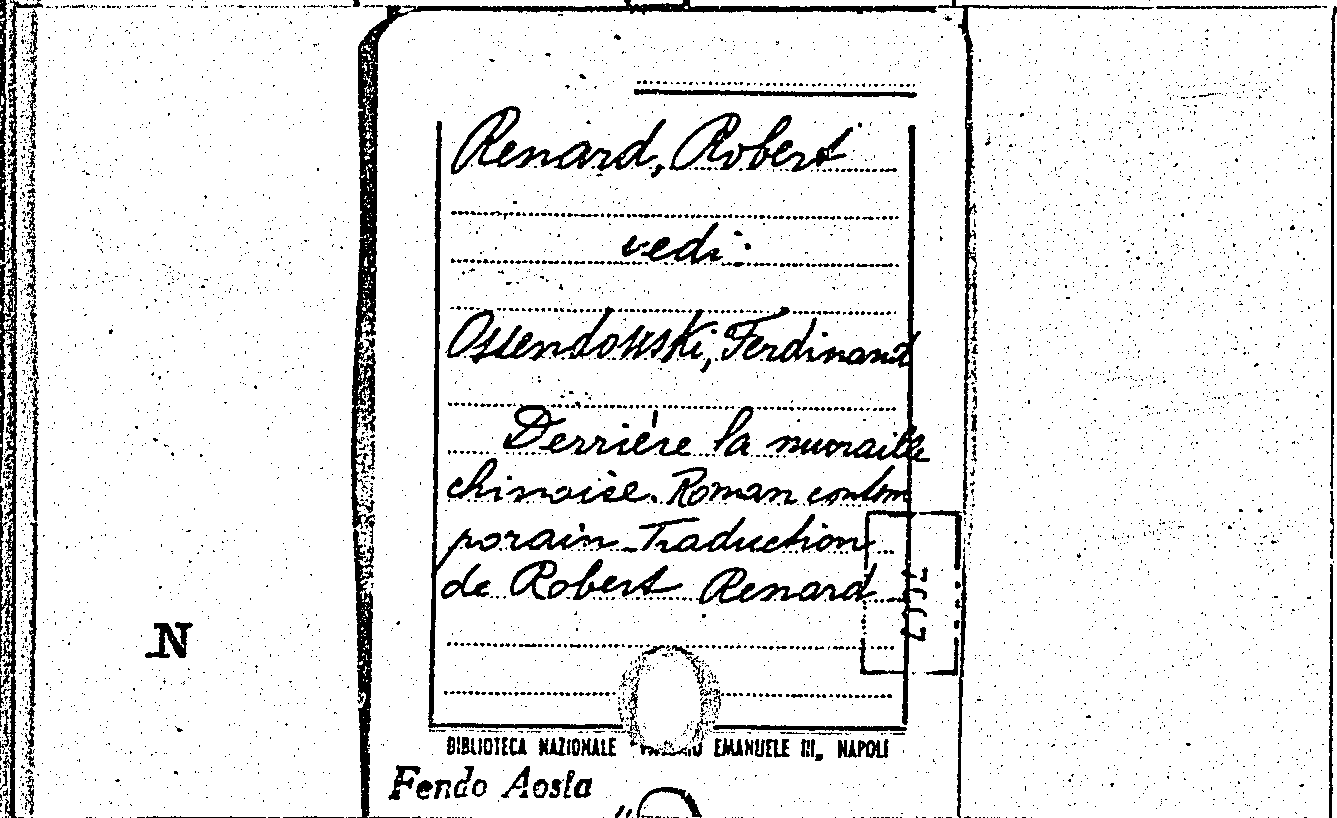 Renard, Robert
vedi:
Ossendowski, Ferdinand
Derrière la muraille
chinoise. Roman contem
porain. Traduction
de Robert Renard
N
BIBLIOTECA NAZIONALE EMANUELE III„ NAPOLI
Fendo Aosta